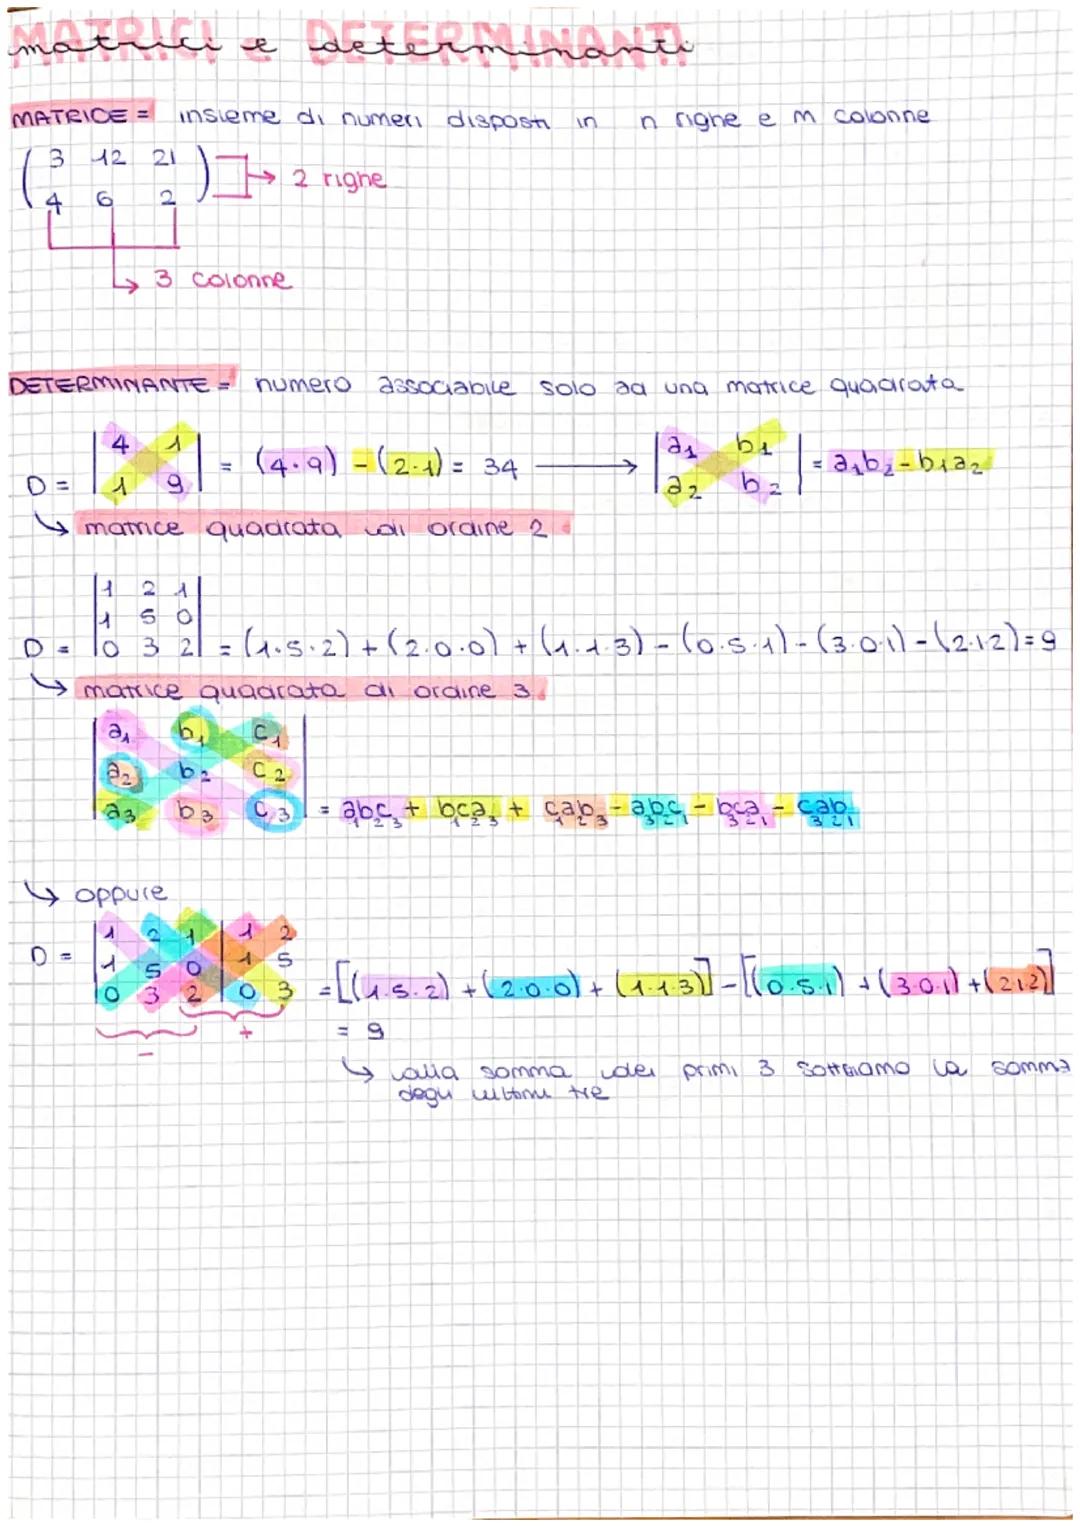 MATRICI e DETERMINANTI
matrici e determinanti
MATRICE = insieme di numeri disposti in n righe e m colonne
3 12 21
4 6 2
2 righe
3 colonne
DETERMINANTE = numero associabile solo ad una matrice quadrata
D = |4 1| = (4·9) - (2·1) = 34 → |a₁ b₁| = a₁b₂ - b₁a₂
|1 9| |a₂ b₂|
↳ matrice quadrata di ordine 2
|1 2 1|
|1 5 0|
D = |0 3 2| = (1·5·2) + (2·0·0) + (1·1·3) - (0·5·1) - (3·0·1) - (2·1·2) = 9
↳ matrice quadrata di ordine 3
a₁ b₁ c₁
a₂ b₂ c₂
a₃ b₃ c₃ = a₁b₂c₃ + b₁c₂a₃ + c₁a₂b₃ - a₃b₂c₁ - b₃c₂a₁ - c₃a₂b₁
↳ oppure
|1 2 1|1 2
D = |1 5 0|1 5
|0 3 2|0 3 = [(1·5·2) + (2·0·0) + (1·1·3)] - [(0·5·1) + (3·0·1) + (2·1·2)]
- +
= 9
↳ alla somma dei primi 3 sottriamo la somma
degli ultimi tre